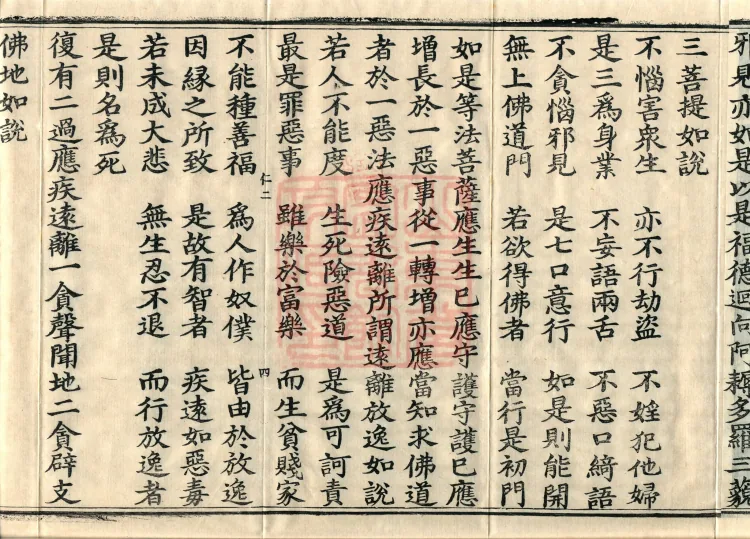 邪見亦如是以是福德迴向阿耨多羅三藐
三菩提如說
不惱害衆生 亦不行劫盜 不婬犯他婦
是三為身業 不妄語兩舌 不惡口綺語
不貪惱邪見 是七口意行 如是則能開
無上佛道門 若欲得佛者 當行是初門
如是等法菩薩應生生已應守護守護已應
增長於一惡事從一轉增亦應當知求佛道
者於一惡法應疾遠離所謂遠離放逸如說
若人不能度 生死險惡道 是為可訶責
最是罪惡事 雖樂於富樂 而生貧賤家
仁二 四
不能種善福 為人作奴僕 皆由於放逸
因緣之所致 是故有智者 疾遠如惡毒
若未成大悲 無生忍不退 而行放逸者
是則名為死
復有二過應疾遠離一貪聲聞地二貪辟支
佛地如說